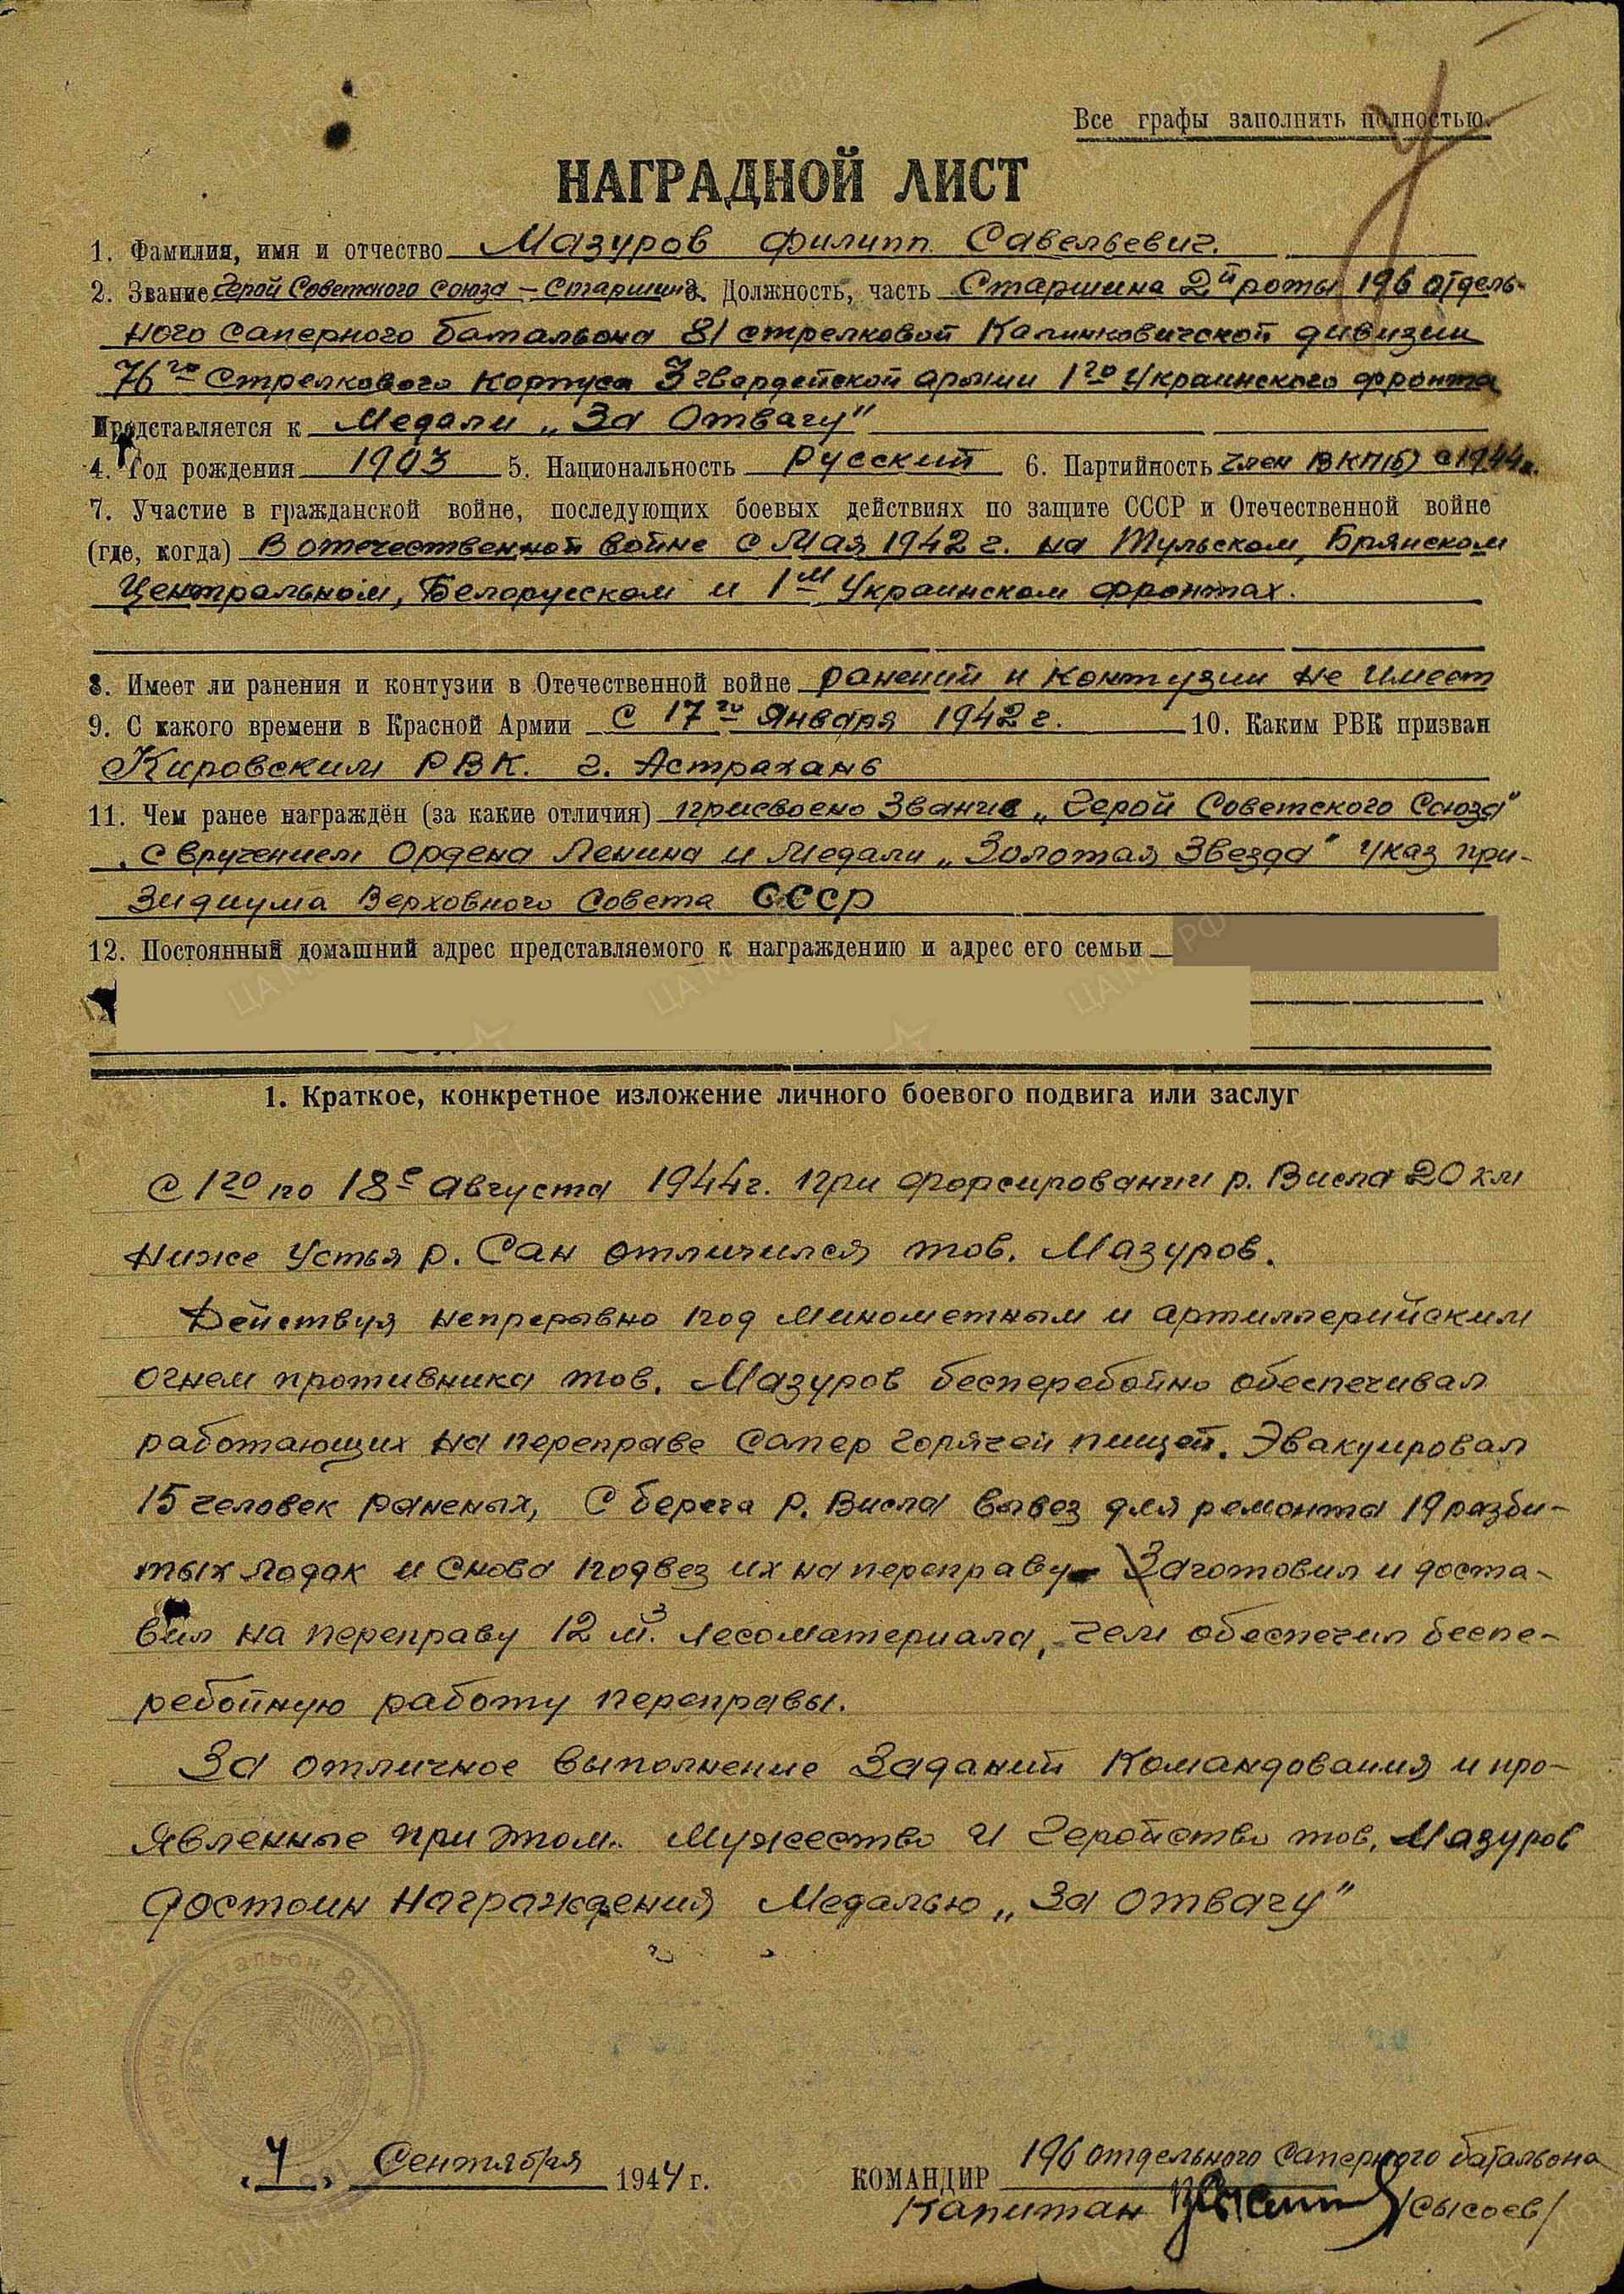 Все графы заполнить полностью.
НАГРАДНОЙ ЛИСТ
1. Фамилия, имя и отчество Мазуров Филипп Савельевич.
2. Звание Герой Советского Союза – Старшина 3. Должность, часть Старшина 2й роты 196 отдель-
ного саперного батальона 81 стрелковой Калинковичской дивизии
76го Стрелкового Корпуса 3 гвардейской армии 1го Украинского фронта
Представляется к Медали „За Отвагу"
4. Год рождения 1903 5. Национальность Русский 6. Партийность член ВКП(б) с 1944г.
7. Участие в гражданской войне, последующих боевых действиях по защите СССР и Отечественной войне
(где, когда) В отечественной войне с Мая 1942 г. на Тульском, Брянском
Центральном, Белорусском и 1м Украинском фронтах.
8. Имеет ли ранения и контузии в Отечественной войне ранений и контузии не имеет
9. С какого времени в Красной Армии С 17го Января 1942 г. 10. Каким РВК призван
Кировским РВК. г. Астрахань
11. Чем ранее награждён (за какие отличия) присвоено Звание „Герой Советского Союза"
с вручением Ордена Ленина и Медали „Золотая Звезда" Указ при-
зидиума Верховного Совета СССР
12. Постоянный домашний адрес представляемого к награждению и адрес его семьи
1. Краткое, конкретное изложение личного боевого подвига или заслуг
С 1го по 18е Августа 1944г. при форсировании р. Висла 20 км
ниже Устья р. Сан отличился тов. Мазуров.
Действуя непрерывно под минометным и артиллерийским
огнем противника тов. Мазуров бесперебойно обеспечивал
работающих на переправе Сапер горячей пищей. Эвакуировал
15 человек раненых, С берега р. Висла вывез для ремонта 19 разби-
тых лодок и Снова подвез их на переправу Заготовил и доста-
вил на переправу 12 м³. лесоматериала, чем обеспечил беспе-
ребойную работу переправы.
За отличное выполнение Заданий Командования и про-
явленные при этом Мужество и Геройство тов. Мазуров
достоин Награждения Медалью „За отвагу"
Саперный батальон 81 СД
„4" Сентября 1944 г.
КОМАНДИР 196 отдельного Саперного батальона
Капитан /Сысоев/